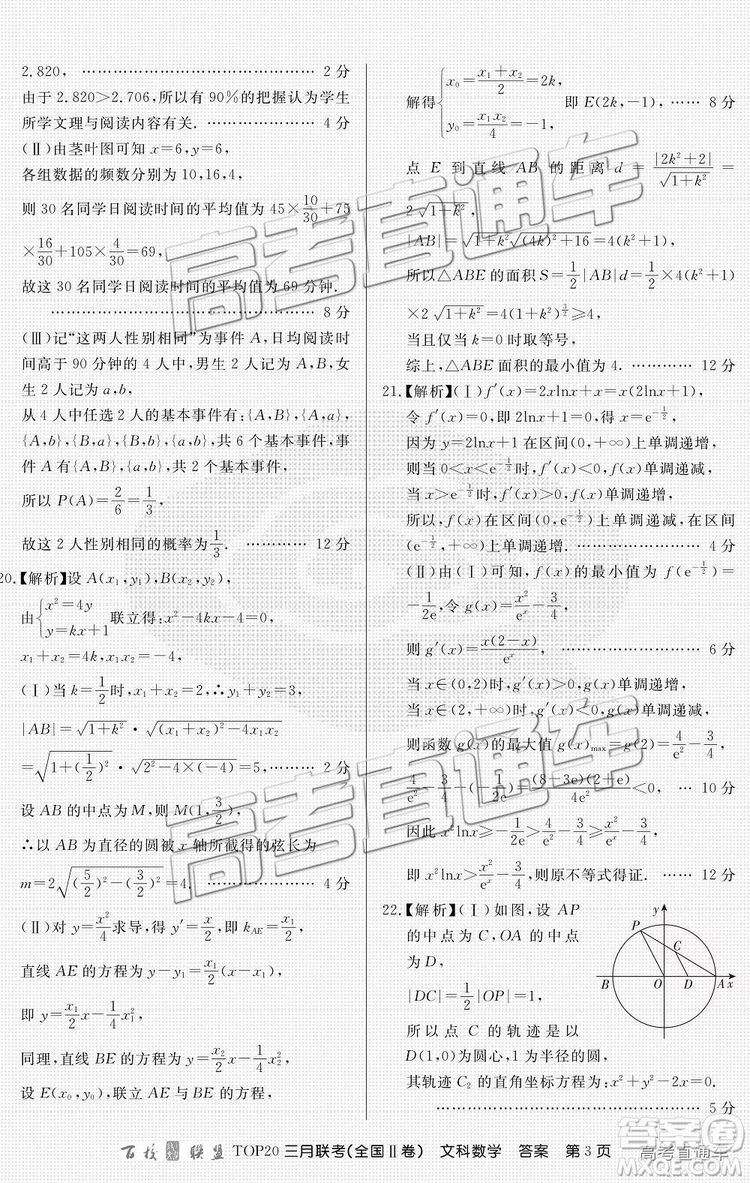 2.820, …………………………………… 2 分
由于 2.820>2.706,所以有 90%的把握认为学生
所学文理与阅读内容有关. ……………… 4 分
(Ⅱ)由茎叶图可知 x=6,y=6,
各组数据的频数分别为 10,16,4,
则 30 名同学日阅读时间的平均值为 45×10/30+75
×16/30+105×4/30=69,
故这 30 名同学日阅读时间的平均值为 69 分钟.
…………………………………………… 8 分
(Ⅲ)记“这两人性别相同”为事件 A,日均阅读时
间高于 90 分钟的 4 人中,男生 2 人记为 A,B,女
生 2 人记为 a,b,
从 4 人中任选 2 人的基本事件有:{A,B},{A,a},
{A,b},{B,a},{B,b},{a,b},共 6 个基本事件,事
件 A 包括{A,B},{a,b},共 2 个基本事件,
所以 P(A)=2/6=1/3,
故这 2 人性别相同的概率为1/3. ………… 12 分
20.【解析】设 A(x₁,y₁),B(x₂,y₂),
由{x²=4y y=kx+1 联立得:x²-4kx-4=0,
x₁+x₂=4k,x₁x₂=-4,
(Ⅰ)当 k=1/2时,x₁+x₂=2,∴y₁+y₂=3,
|AB|=√(1+k²)·√((x₁+x₂)²-4x₁x₂)
=√(1+(1/2)²)·√(2²-4×(-4))=5, ……… 2 分
设 AB 的中点为 M,则 M(1,3/2),
∴以 AB 为直径的圆被 x 轴所截得的弦长为
m=2√((5/2)²-(3/2)²)=4. ………………… 4 分
(Ⅱ)对 y=x²/4求导,得 y′=x/2,即 k_AE=x₁/2,
直线 AE 的方程为 y-y₁=x₁/2(x-x₁),
即 y=x₁/2x-1/4x₁²,
同理,直线 BE 的方程为 y=x₂/2x-1/4x₂²,
设 E(x₀,y₀),联立 AE 与 BE 的方程,
解得{x₀=(x₁+x₂)/2=2k, y₀=x₁x₂/4=-1, 即 E(2k,-1), …… 8 分
点 E 到直线 AB 的距离 d=|2k²+2|/√(1+k²)=
2√(1+k²),
|AB|=√(1+k²)√((4k)²+16)=4(1+k²),
所以△ABE 的面积 S=1/2|AB|d=1/2×4(1+k²)
×2√(1+k²)=4(1+k²)^(3/2)≥4,
当且仅当 k=0 时取等号,
综上,△ABE 面积的最小值为 4. ……… 12 分
21.【解析】(Ⅰ)f′(x)=2xlnx+x=x(2lnx+1)
令 f′(x)=0,即 2lnx+1=0,解得 x=e^(-1/2),
因为 y=2lnx+1 在区间(0,+∞)上单调递增,
则当 0<x<e^(-1/2)时,f′(x)<0,f(x)单调递减,
当 x>e^(-1/2)时,f′(x)>0,f(x)单调递增,
所以,f(x)在区间(0,e^(-1/2))上单调递减,在区间
(e^(-1/2),+∞)上单调递增. ………………… 4 分
(Ⅱ)由(Ⅰ)可知,f(x)的最小值为 f(e^(-1/2))=
-1/2e,令 g(x)=x²/eˣ-3/4,
则 g′(x)=x(2-x)/eˣ, ……………………… 6 分
当 x∈(0,2)时,g′(x)>0,g(x)单调递增,
当 x∈(2,+∞)时,g′(x)<0,g(x)单调递减,
则函数 g(x)的最大值 g(x)max=g(2)=4/e²-3/4,
4/e²-3/4-(-1/2e)=(8-3e)(2+e)/4e²<0, … 10 分
因此 x²lnx≥-1/2e>4/e²-3/4≥x²/eˣ-3/4,
即 x²lnx>x²/eˣ-3/4,即原不等式得证. …… 12 分
22.【解析】(Ⅰ)如图,设 AP
的中点为 C,OA 的中点
为 D,
|DC|=1/2|OP|=1,
所以点 C 的轨迹是以
D(1,0)为圆心,1 为半径的圆,
其轨迹 C₂ 的直角坐标方程为 x²+y²-2x=0.
…………………………………………… 5 分
y
P
C
B
O
D
A
x
百校 联盟 TOP20 三月联考(全国Ⅱ卷) 文科数学 答案 第 3 页
高考直通车
高考直通车
高考直通车